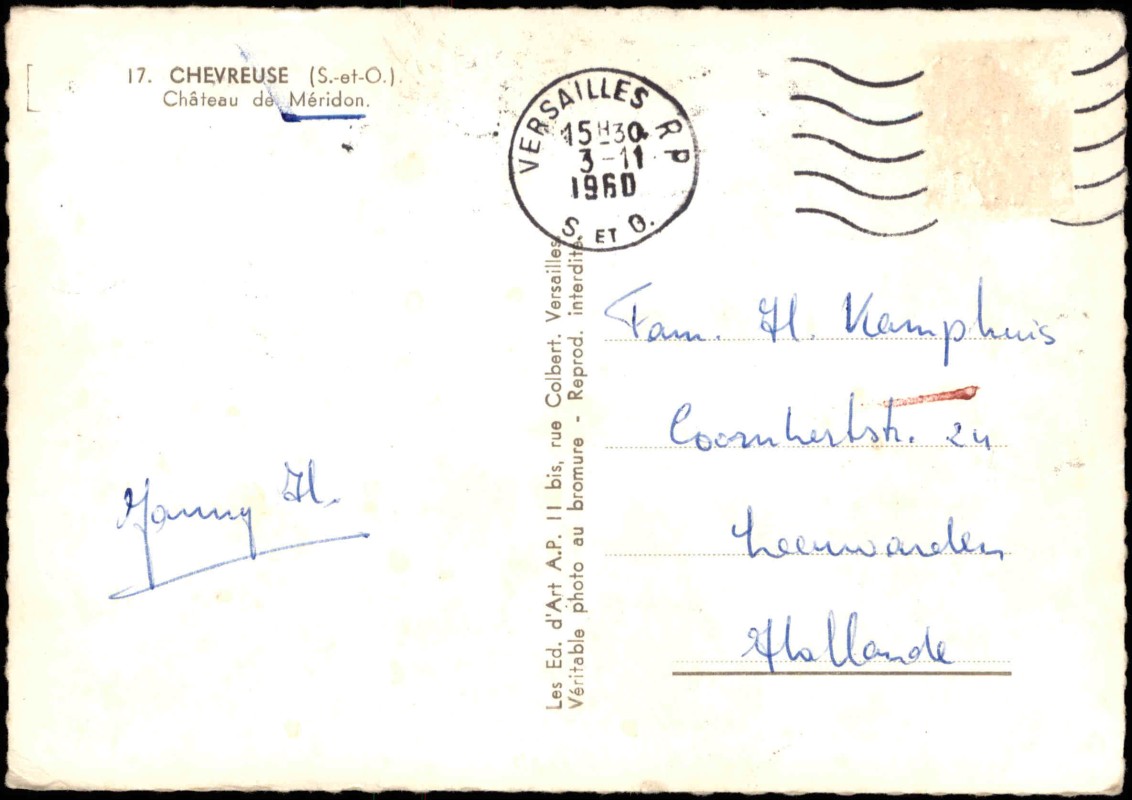 17. CHEVREUSE (S.-et-O.).
Château de Méridon.
VERSAILLES R P
15H30
3-11
1960
S. ET O.
Les Ed. d'Art A.P. 11 bis, rue Colbert. Versailles.
Véritable photo au bromure - Reprod. interdite.
Fam. H. Kamphuis
Coornhertstr. 24
Leeuwarden
Hollande
H.